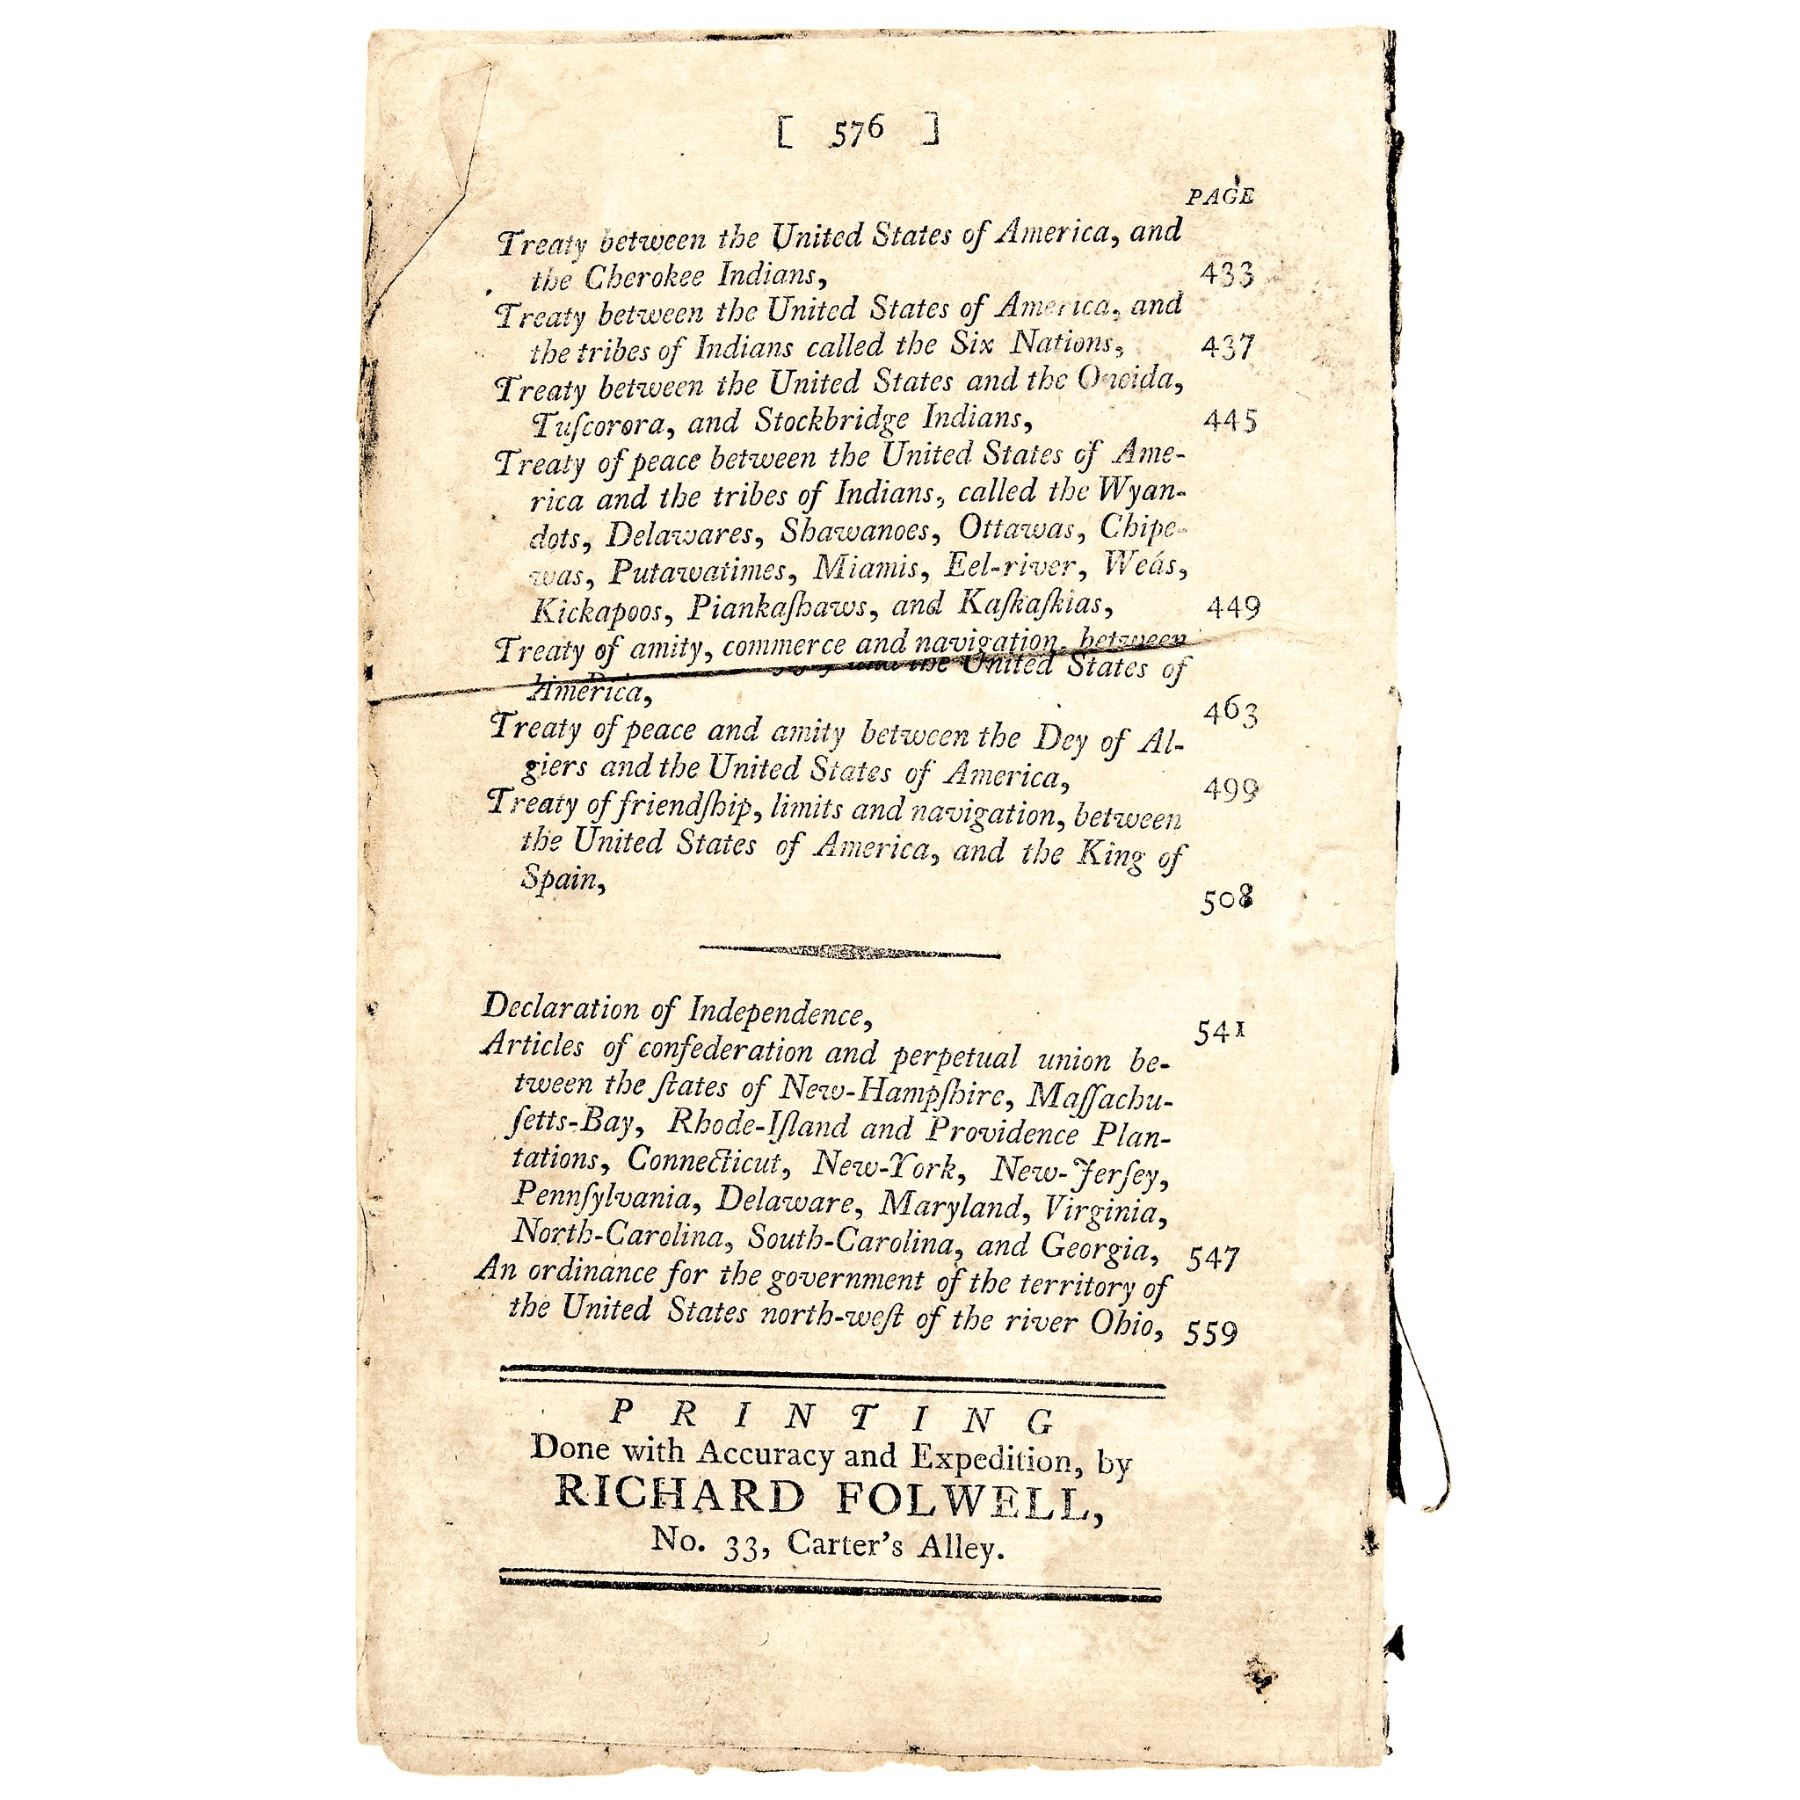 [ 576 ]
PAGE
Treaty between the United States of America, and
the Cherokee Indians, 433
Treaty between the United States of America, and
the tribes of Indians called the Six Nations, 437
Treaty between the United States and the Oneida,
Tuſcorora, and Stockbridge Indians, 445
Treaty of peace between the United States of Ame-
rica and the tribes of Indians, called the Wyan-
dots, Delawares, Shawanoes, Ottawas, Chipe-
was, Putawatimes, Miamis, Eel-river, Weás,
Kickapoos, Piankaſhaws, and Kaſkaſkias, 449
Treaty of amity, commerce and navigation, between
and the United States of
America, 463
Treaty of peace and amity between the Dey of Al-
giers and the United States of America, 499
Treaty of friendſhip, limits and navigation, between
the United States of America, and the King of
Spain, 508
Declaration of Independence, 541
Articles of confederation and perpetual union be-
tween the ſtates of New-Hampſhire, Maſſachu-
ſetts-Bay, Rhode-Iſland and Providence Plan-
tations, Connecticut, New-York, New-Jerſey,
Pennſylvania, Delaware, Maryland, Virginia,
North-Carolina, South-Carolina, and Georgia, 547
An ordinance for the government of the territory of
the United States north-weſt of the river Ohio, 559
PRINTING
Done with Accuracy and Expedition, by
RICHARD FOLWELL,
No. 33, Carter's Alley.